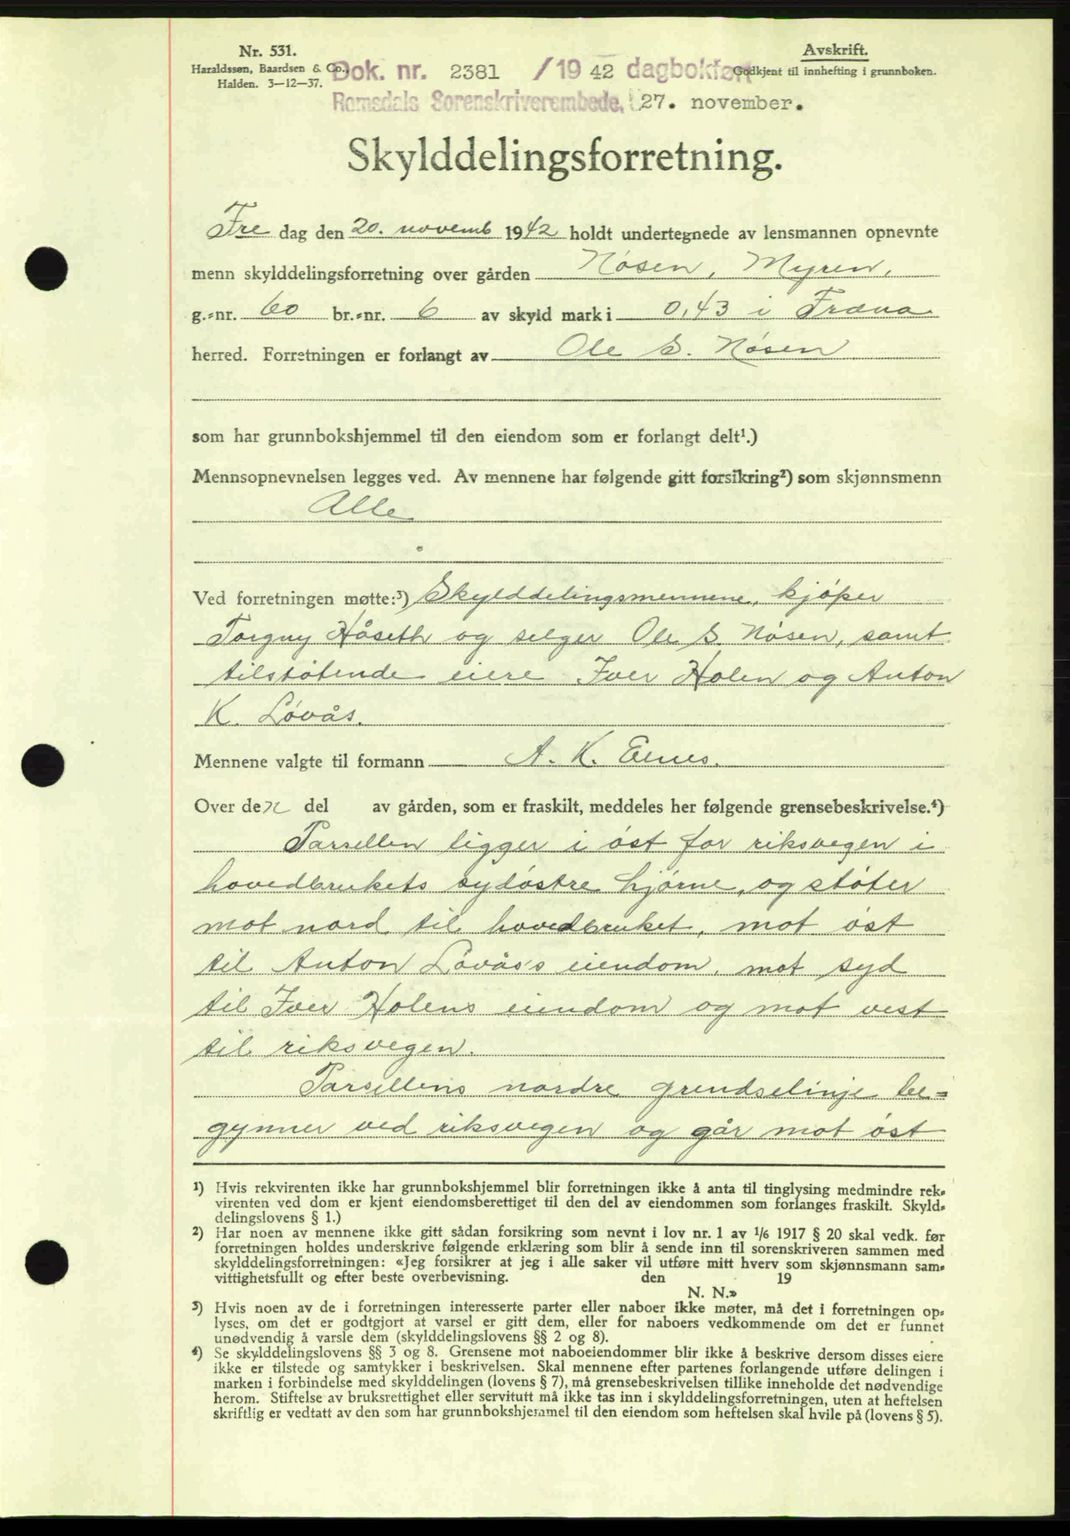 Nr. 531.
Haraldssøn, Baardsen & Co.,
Halden. 3-12-37.
Avskrift.
Godkjent til innhefting i grunnboken.
Dok. nr. 2381 /19 42 dagbokført
Romsdals Sorenskriverembede, 27. november.
Skylddelingsforretning.
Fre dag den 20. novemb 1942 holdt undertegnede av lensmannen opnevnte
menn skylddelingsforretning over gården Nøsen, Myren,
g.-nr. 60 br.-nr. 6 av skyld mark i 0,43 i Fræna
herred. Forretningen er forlangt av Ole S. Nøsen
som har grunnbokshjemmel til den eiendom som er forlangt delt¹.)
Mennsopnevnelsen legges ved. Av mennene har følgende gitt forsikring²) som skjønnsmenn
Alle
Ved forretningen møtte:³) Skylddelingsmennene, kjøper
Torguy Håseth og selger Ole S. Nøsen, samt
tilstøtende eiere Iver Holen og Anton
K. Løvås.
Mennene valgte til formann A. K. Elnes.
Over den del av gården, som er fraskilt, meddeles her følgende grensebeskrivelse.⁴)
Parsellen ligger i øst for riksvegen i
hovedbrukets sydøstre hjørne, og støter
mot nord til hovedbruket, mot øst
til Anton Løvås's eiendom, mot syd
til Iver Holens eiendom og mot vest
til riksvegen.
Parsellens nordre grendselinje be=
gynner ved riksvegen og går mot øst
¹) Hvis rekvirenten ikke har grunnbokshjemmel blir forretningen ikke å anta til tinglysing medmindre rek-
virenten ved dom er kjent eiendomsberettiget til den del av eiendommen som forlanges fraskilt. Skyld-
delingslovens § 1.)
²) Har noen av mennene ikke gitt sådan forsikring som nevnt i lov nr. 1 av 1/6 1917 § 20 skal vedk. før
forretningen holdes underskrive følgende erklæring som blir å sende inn til sorenskriveren sammen med
skylddelingsforretningen: «Jeg forsikrer at jeg i alle saker vil utføre mitt hverv som skjønnsmann sam-
vittighetsfullt og efter beste overbevisning. den 19
N. N.»
³) Hvis noen av de i forretningen interesserte parter eller naboer ikke møter, må det i forretningen op-
lyses, om det er godtgjort at varsel er gitt dem, eller for naboers vedkommende om det er funnet
unødvendig å varsle dem (skylddelingslovens §§ 2 og 8).
⁴) Se skylddelingslovens §§ 3 og 8. Grensene mot naboeiendommer blir ikke å beskrive dersom disses eiere
ikke er tilstede og samtykker i beskrivelsen. Skal mennene efter partenes forlangende utføre delingen i
marken i forbindelse med skylddelingen (lovens § 7), må grensebeskrivelsen tillike inneholde det nødvendige
herom. Stiftelse av bruksrettighet eller servitutt må ikke tas inn i skylddelingsforretningen, uten at heftelsen
skriftlig er vedtatt av den som har grunnbokshjemmel til den eiendom som heftelsen skal hvile på (lovens § 5).